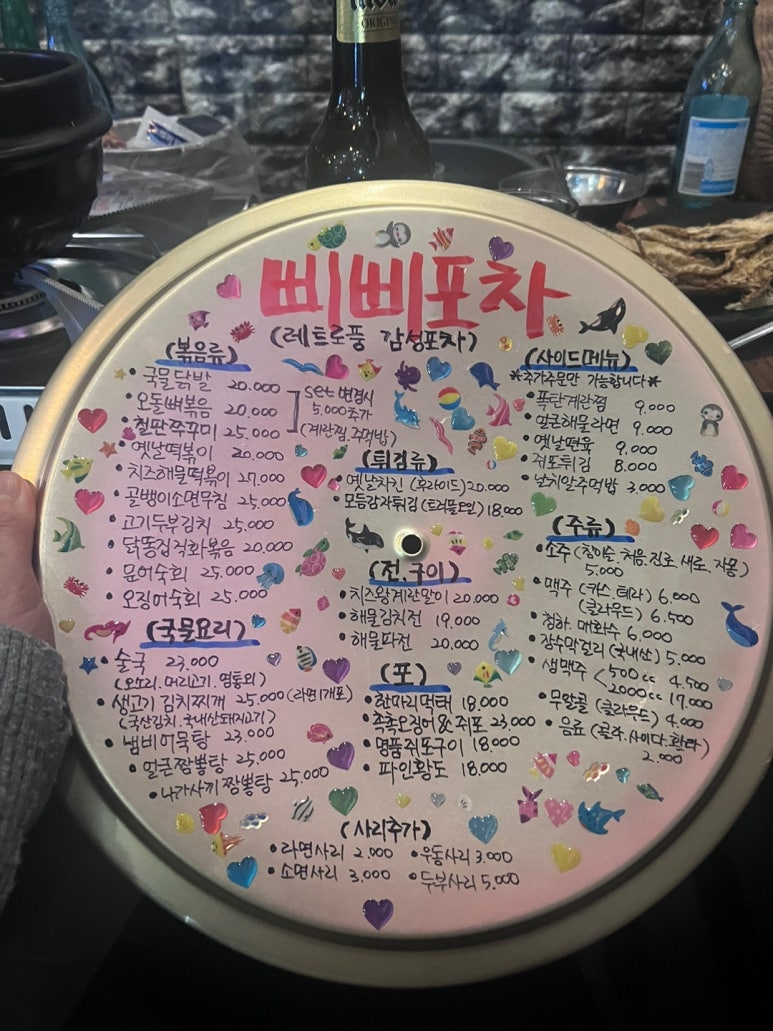 ORIGINAL
삐삐포차
(레트로풍 감성포차)
(볶음류)
• 국물닭발 20.000
• 오돌뼈볶음 20.000
• 철판쭈꾸미 25.000
set 변경시
5.000추가
(계란찜.주먹밥)
• 옛날떡볶이 20.000
• 치즈해물떡볶이 27.000
• 골뱅이소면무침 25.000
• 고기두부김치 25.000
• 닭똥집직화볶음 20.000
• 문어숙회 25.000
• 오징어숙회 25.000
(국물요리)
• 술국 23.000
(오소리.머리고기.염통외)
• 생고기 김치찌개 25.000 (라면1개포)
(국산김치.국내산돼지고기)
• 냄비어묵탕 23.000
• 얼큰짬뽕탕 25.000
• 나가사끼 짬뽕탕 25.000
(튀김류)
• 옛날치킨 (후라이드) 20.000
• 모듬감자튀김 (트러플오일) 18.000
(전.구이)
• 치즈왕계란말이 20.000
• 해물김치전 19.000
• 해물파전 20.000
(포)
• 한마리먹태 18.000
• 촉촉오징어&쥐포 23.000
• 명품쥐포구이 18.000
• 파인황도 18.000
(사이드메뉴)
*추가주문만 가능합니다*
• 폭탄계란찜 9.000
• 얼큰해물라면 9.000
• 옛날면육 9.000
• 쥐포튀김 8.000
• 날치알주먹밥 3.000
(주류)
• 소주 (참이슬.처음.진로.새로.자몽)
5.000
• 맥주 (카스.테라) 6.000
(클라우드) 6.500
• 청하.매화수 6.000
• 장수막걸리 (국내산) 5.000
• 생맥주 < 500cc 4.500
2000cc 17.000
• 무알콜 (클라우드) 4.000
• 음료 (콜라.사이다.환타)
2.000
(사리추가)
• 라면사리 2.000 • 우동사리 3.000
• 소면사리 3.000 • 두부사리 5.000